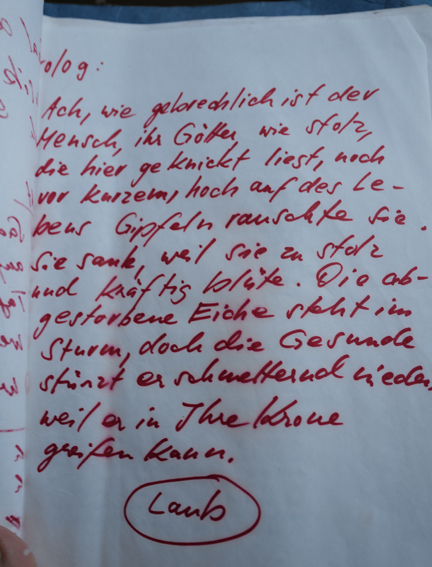 olog:
Ach, wie gebrechlich ist der
Mensch, ihr Götter wie stolz,
die hier geknickt liegt, noch
vor kurzem, hoch auf des Le-
bens Gipfeln rauschte sie.
Sie sank, weil sie zu stolz
und kräftig blüte. Die ab-
gestorbene Eiche steht im
Sturm, doch die Gesunde
stürzt er schmetternd nieder,
weil er in Ihre Krone
greifen kann.
Laub